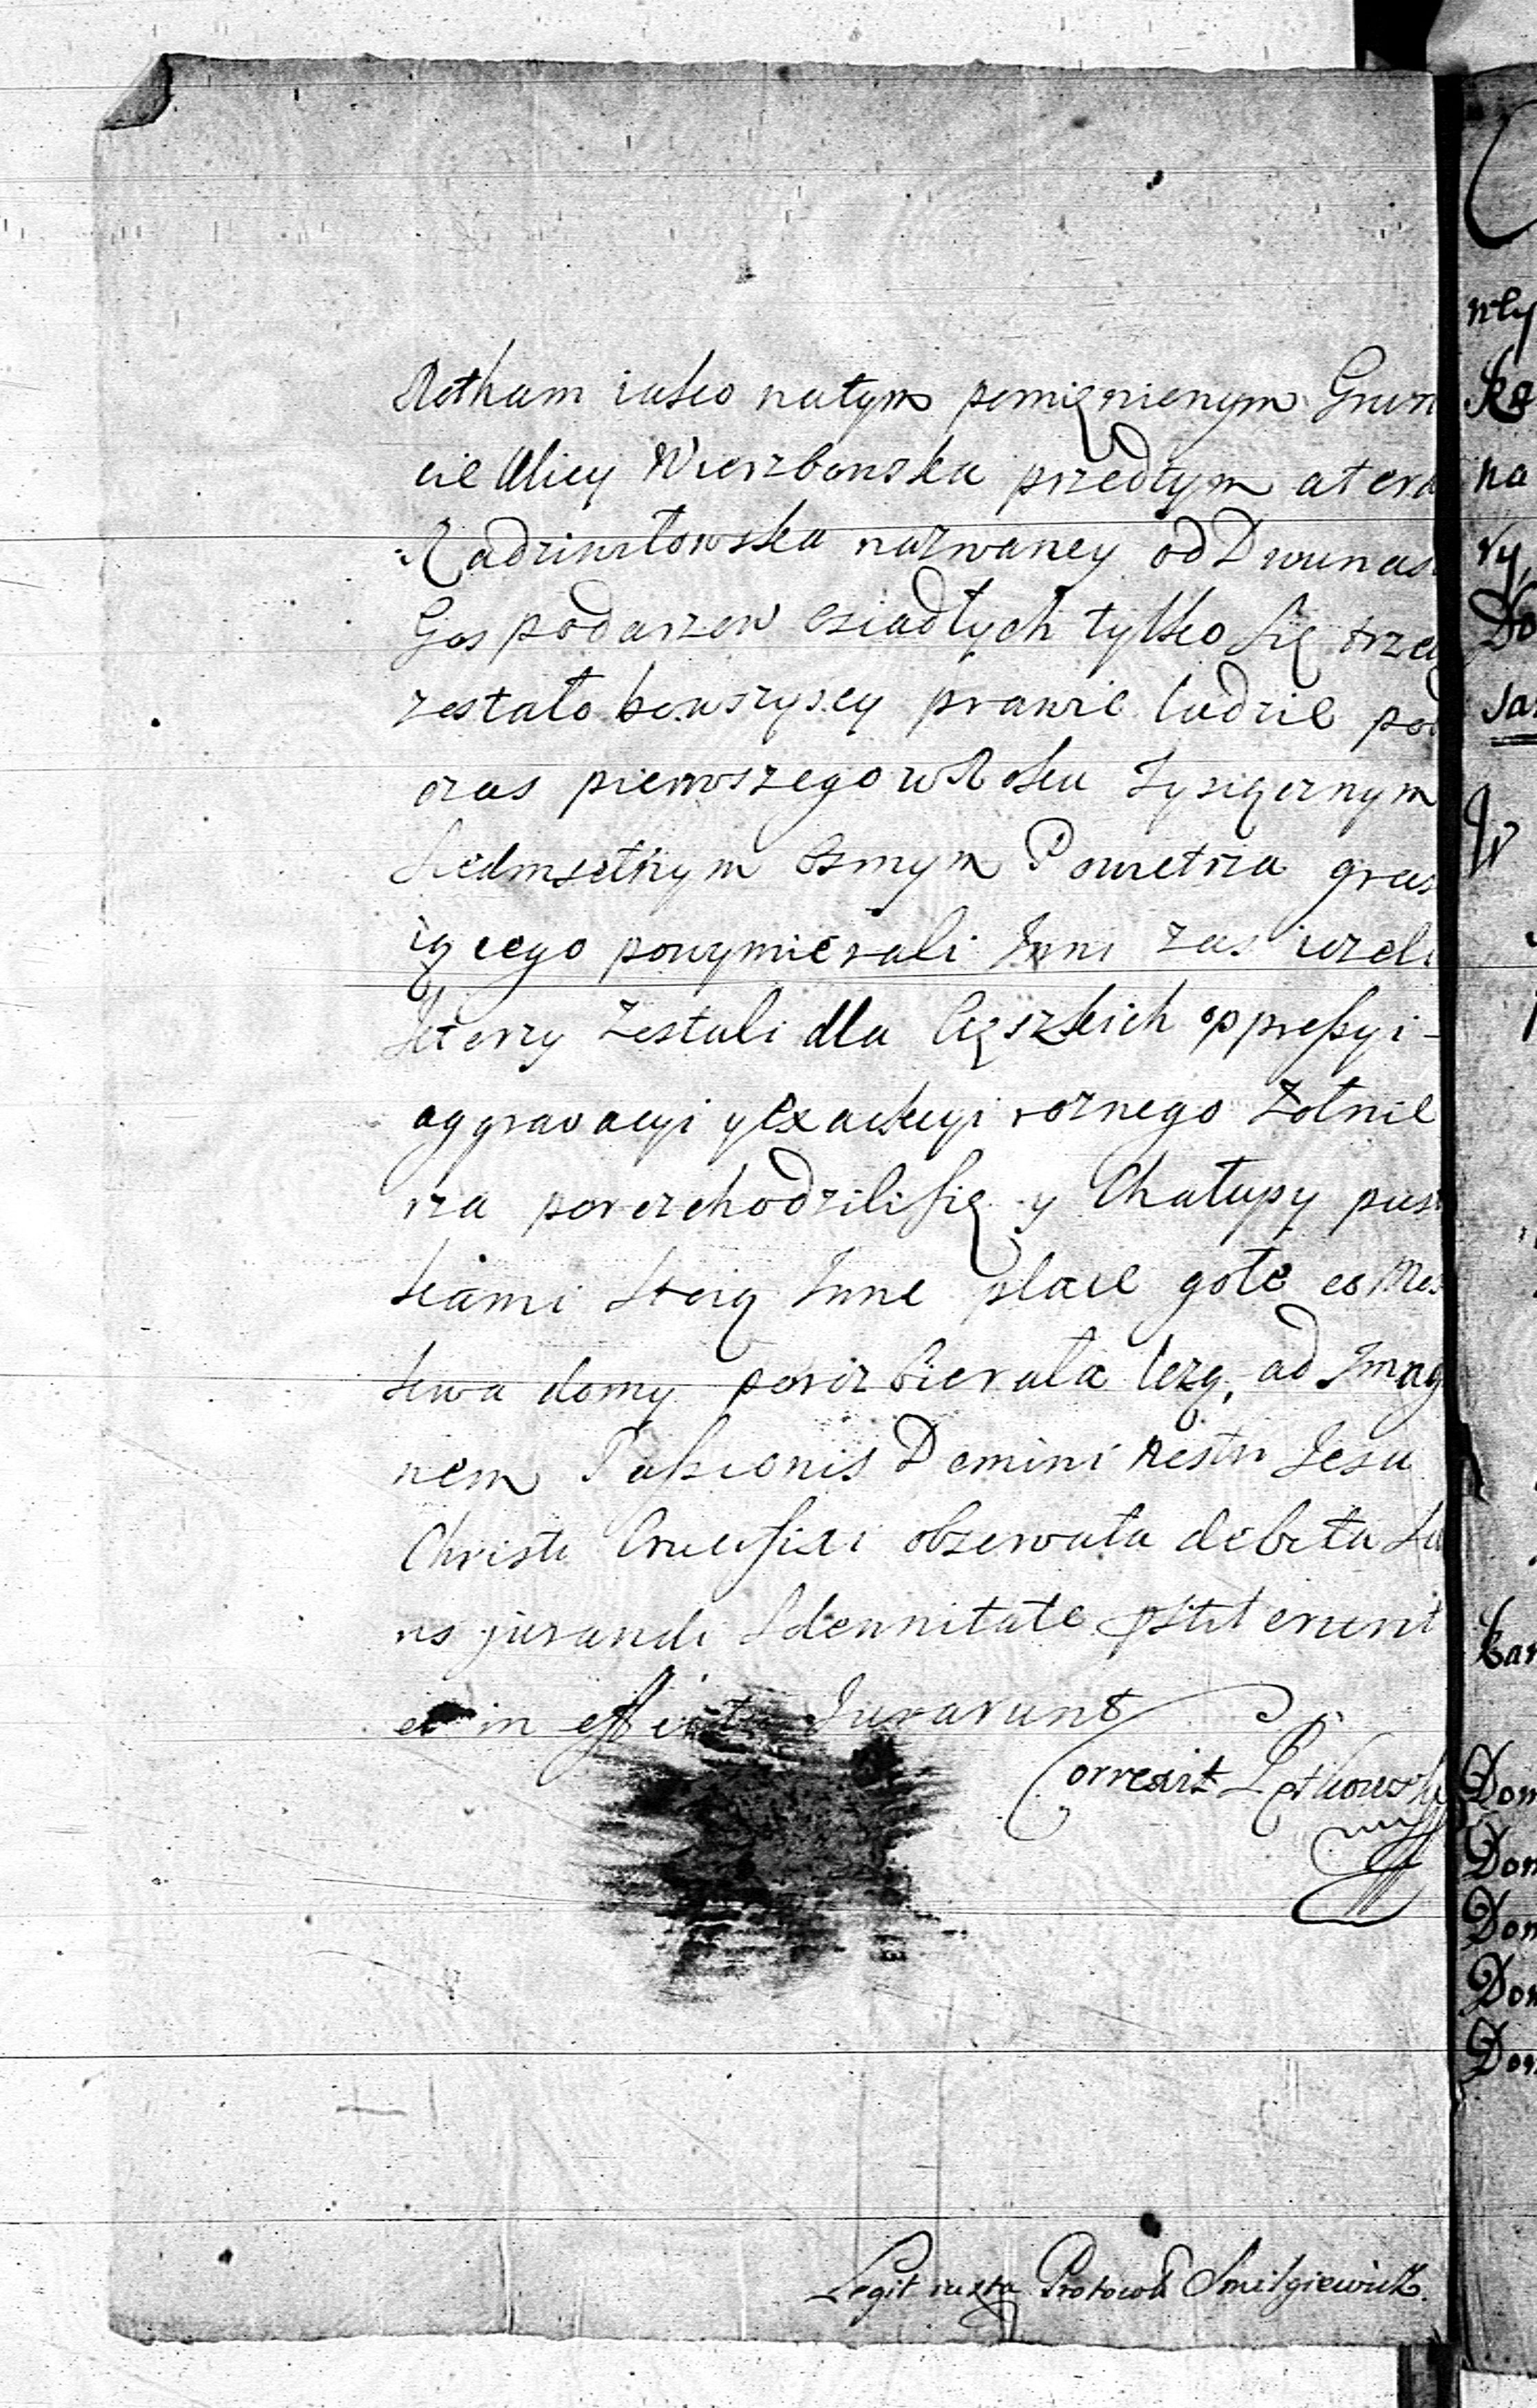 Rotham iako natym pomięnionym Grun
cie Ulicy Wierzbowska przedtym a tera
Radziwiłowska nazwaney od Dwunas
Gospodarzow osiadłych tylko się trzec
zostało bo wszyscy prawie ludzie pod
czas pierwszego w Roku Tysiącznym
Siedmsetnym osmym Powietrza gras
iącego powymierali Inni zas ieżeli
ktorzy zostali dla Cięszkich oppressyi
aggravacyi y exakcyi roznego Zołnie
rza porozchodzili się y Chałupy pust
kami stoią Inne place gołe co Mos
kwa domy porozbierała leżą, ad Imag
nem Passionis Domini nostri Jesu
Christi Crucifixi observata debita Iu
ris jurandi Solennitate pstiterunt
et in effectu Iurarunt
Correxit
mp
nty
ka
na
ry,
Do
W
kar
Dom
Dom
Dom
Dom
Dom
Legit iuxta Protocol Smilgiewicz